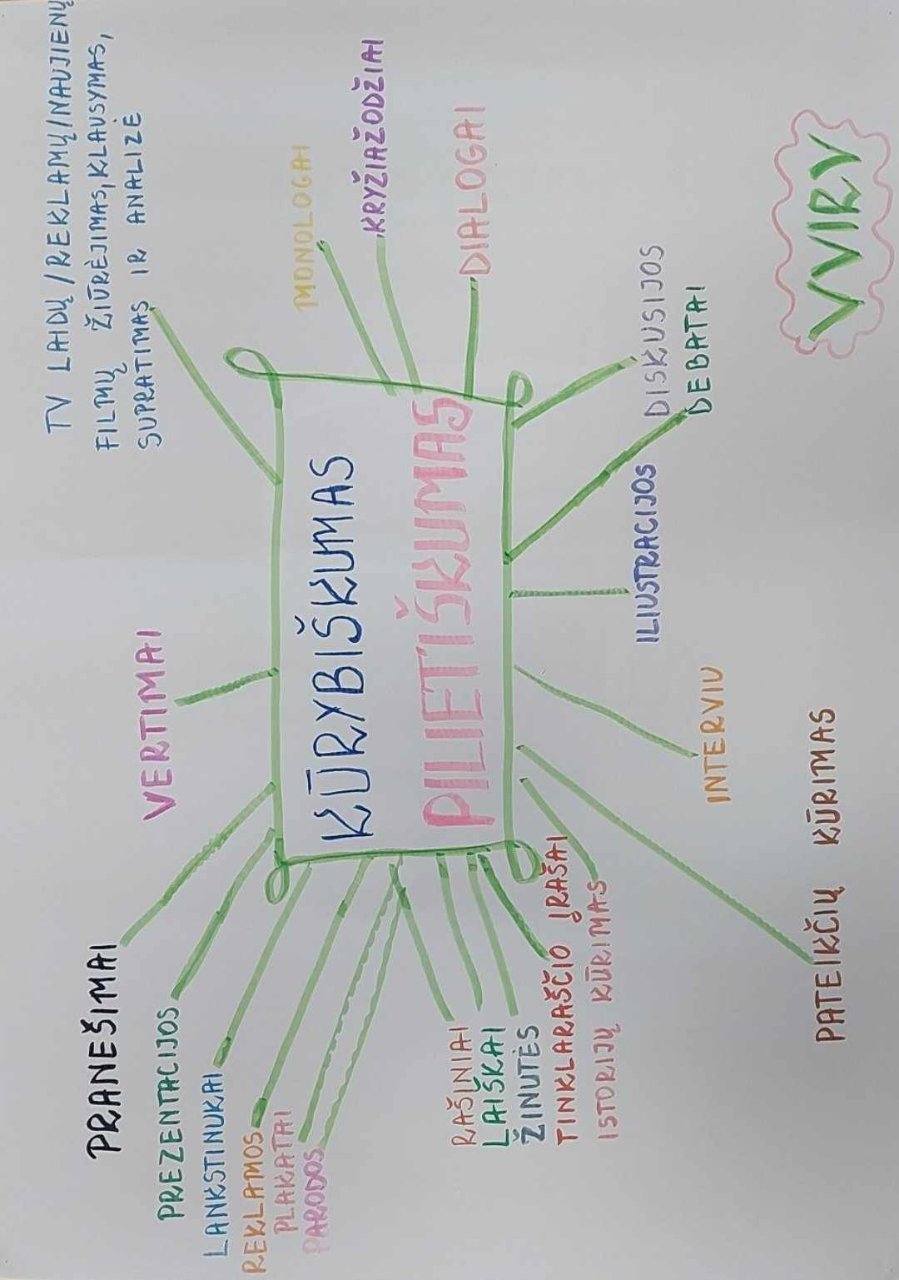 TV LAIDŲ/REKLAMŲ/NAUJIENŲ
FILMŲ ŽIŪRĖJIMAS, KLAUSYMAS,
SUPRATIMAS IR ANALIZĖ
VERTIMAI
PRANEŠIMAI
PREZENTACIJOS
LANKSTINUKAI
REKLAMOS
PLAKATAI
PARODOS
KŪRYBIŠKUMAS
PILIETIŠKUMAS
MONOLOGAI
KRYŽIAŽODŽIAI
DIALOGAI
RAŠINIAI
LAIŠKAI
ŽINUTĖS
TINKLARAŠČIO ĮRAŠAI
ISTORIJŲ KŪRIMAS
ILIUSTRACIJOS
DISKUSIJOS
DEBATAI
INTERVIU
PATEIKČIŲ KŪRIMAS
VVIRV